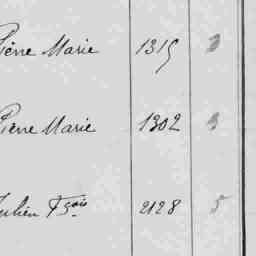 Pierre Marie 1315 3
Pierre Marie 1302 3
Julien Fçois 2128 5